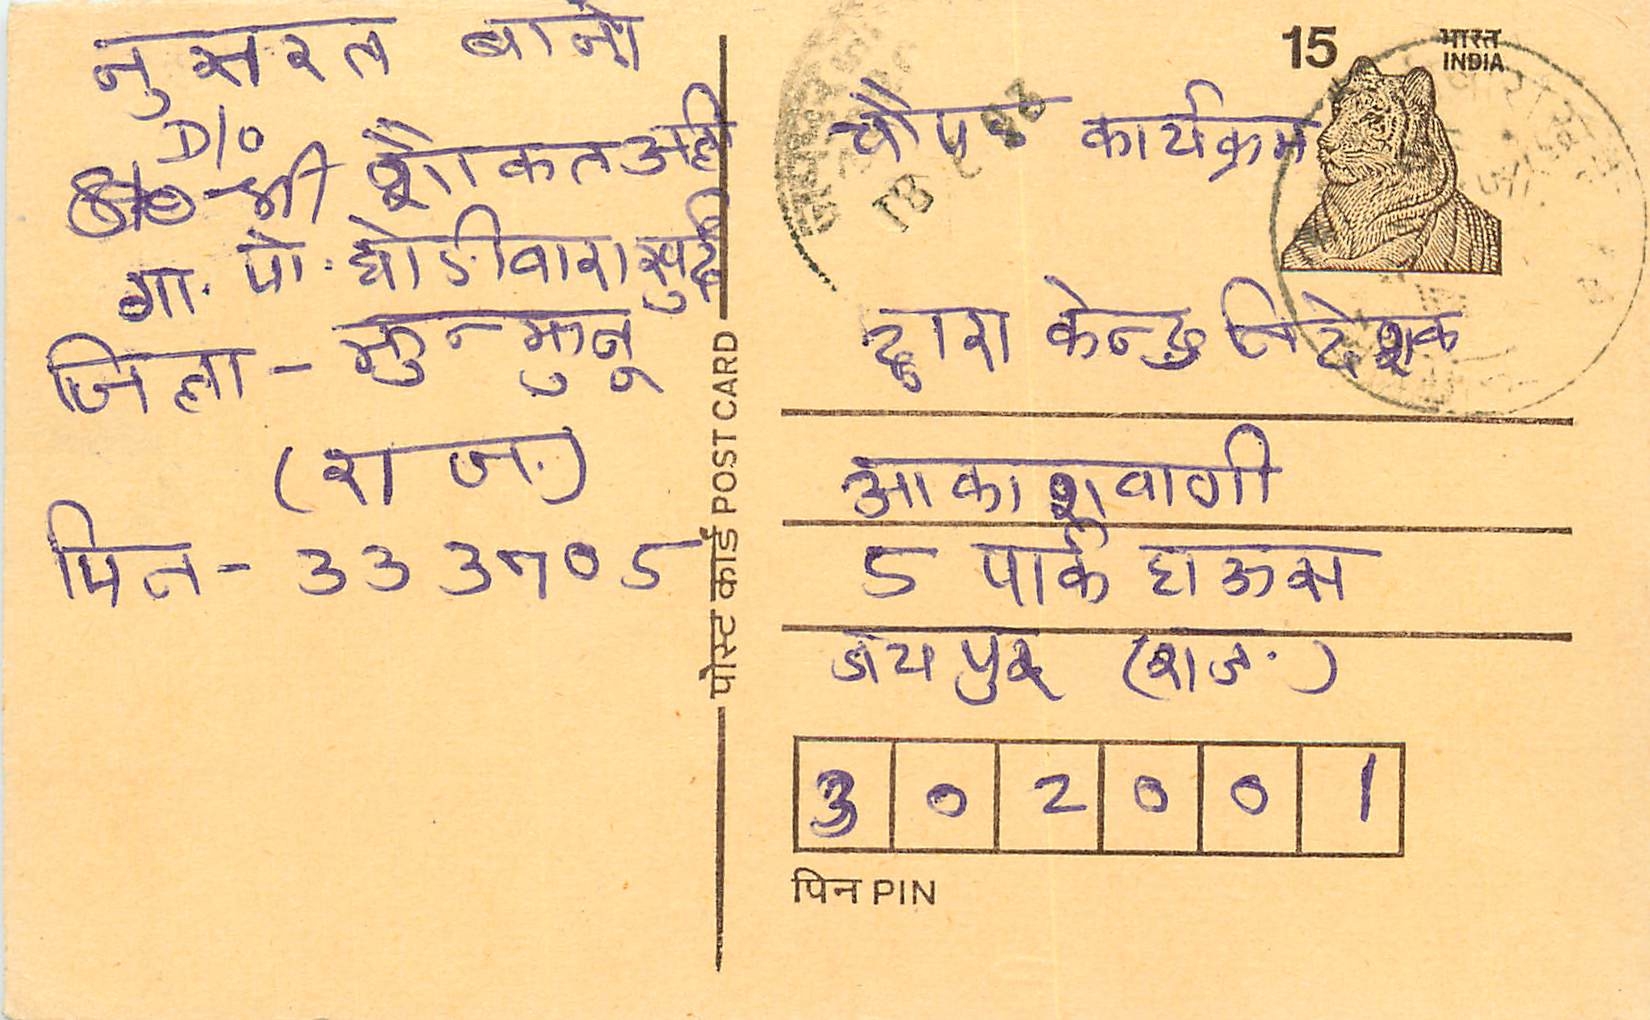 नुसरत बानो
D/o
श्री शौकत अली
गा. पो. घोडीवारा खुर्द
जिला - झुन्झुनू
(राज.)
पिन - 333705
पोस्ट कार्ड POST CARD
15
भारत
INDIA
चौपाल कार्यक्रम
द्वारा केन्द्र निदेशक
आकाशवाणी
5 पार्क हाऊस
जयपुर (राज.)
3 0 2 0 0 1
पिन PIN